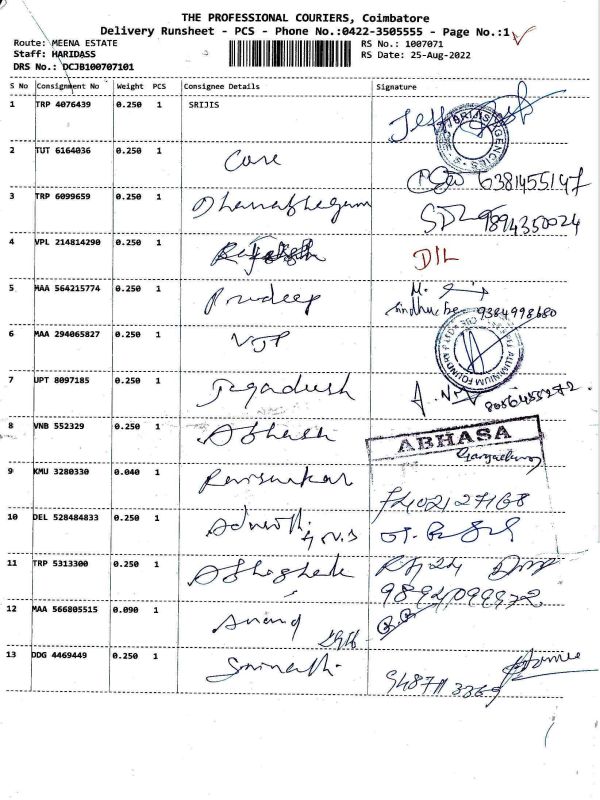 THE PROFESSIONAL COURIERS, Coimbatore
Delivery Runsheet - PCS - Phone No.:0422-3505555 - Page No.:1
Route: MEENA ESTATE
RS No.: 1007071
Staff: HARIDASS
RS Date: 25-Aug-2022
DRS No.: DCJB100707101
S No Consignment No Weight PCS Consignee Details Signature
1 TRP 4076439 0.250 1 SRIJIS
AGENCIES
2 TUT 6164036 0.250 1 Care
6381455147
3 TRP 6099659 0.250 1
9894350024
4 VPL 214814290 0.250 1 D/L
5 MAA 564215774 0.250 1 Pradeep M.
9384998680
6 MAA 294065827 0.250 1 VJP
ALUMINIUM FOUND
7 UPT 8097185 0.250 1 Jegadesh
8056455272
8 VNB 552329 0.250 1 Abhash
ABHASA
9 KMU 3280330 0.040 1
10 DEL 528484833 0.250 1
11 TRP 5313300 0.250 1
12 MAA 566805515 0.090 1 Anand
13 DDG 4469449 0.250 1 Srinath